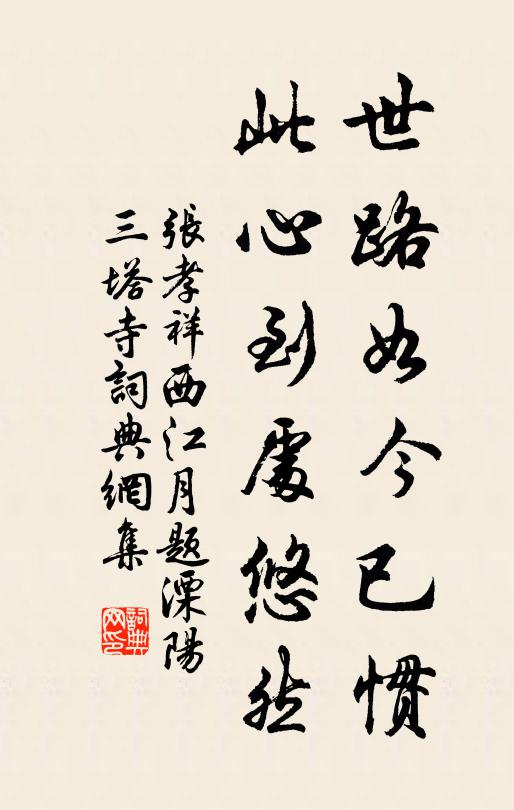 世路如今已慣
此心到處悠然
張孝祥西江月題溧陽
三塔寺詞典網集
詞典
网印